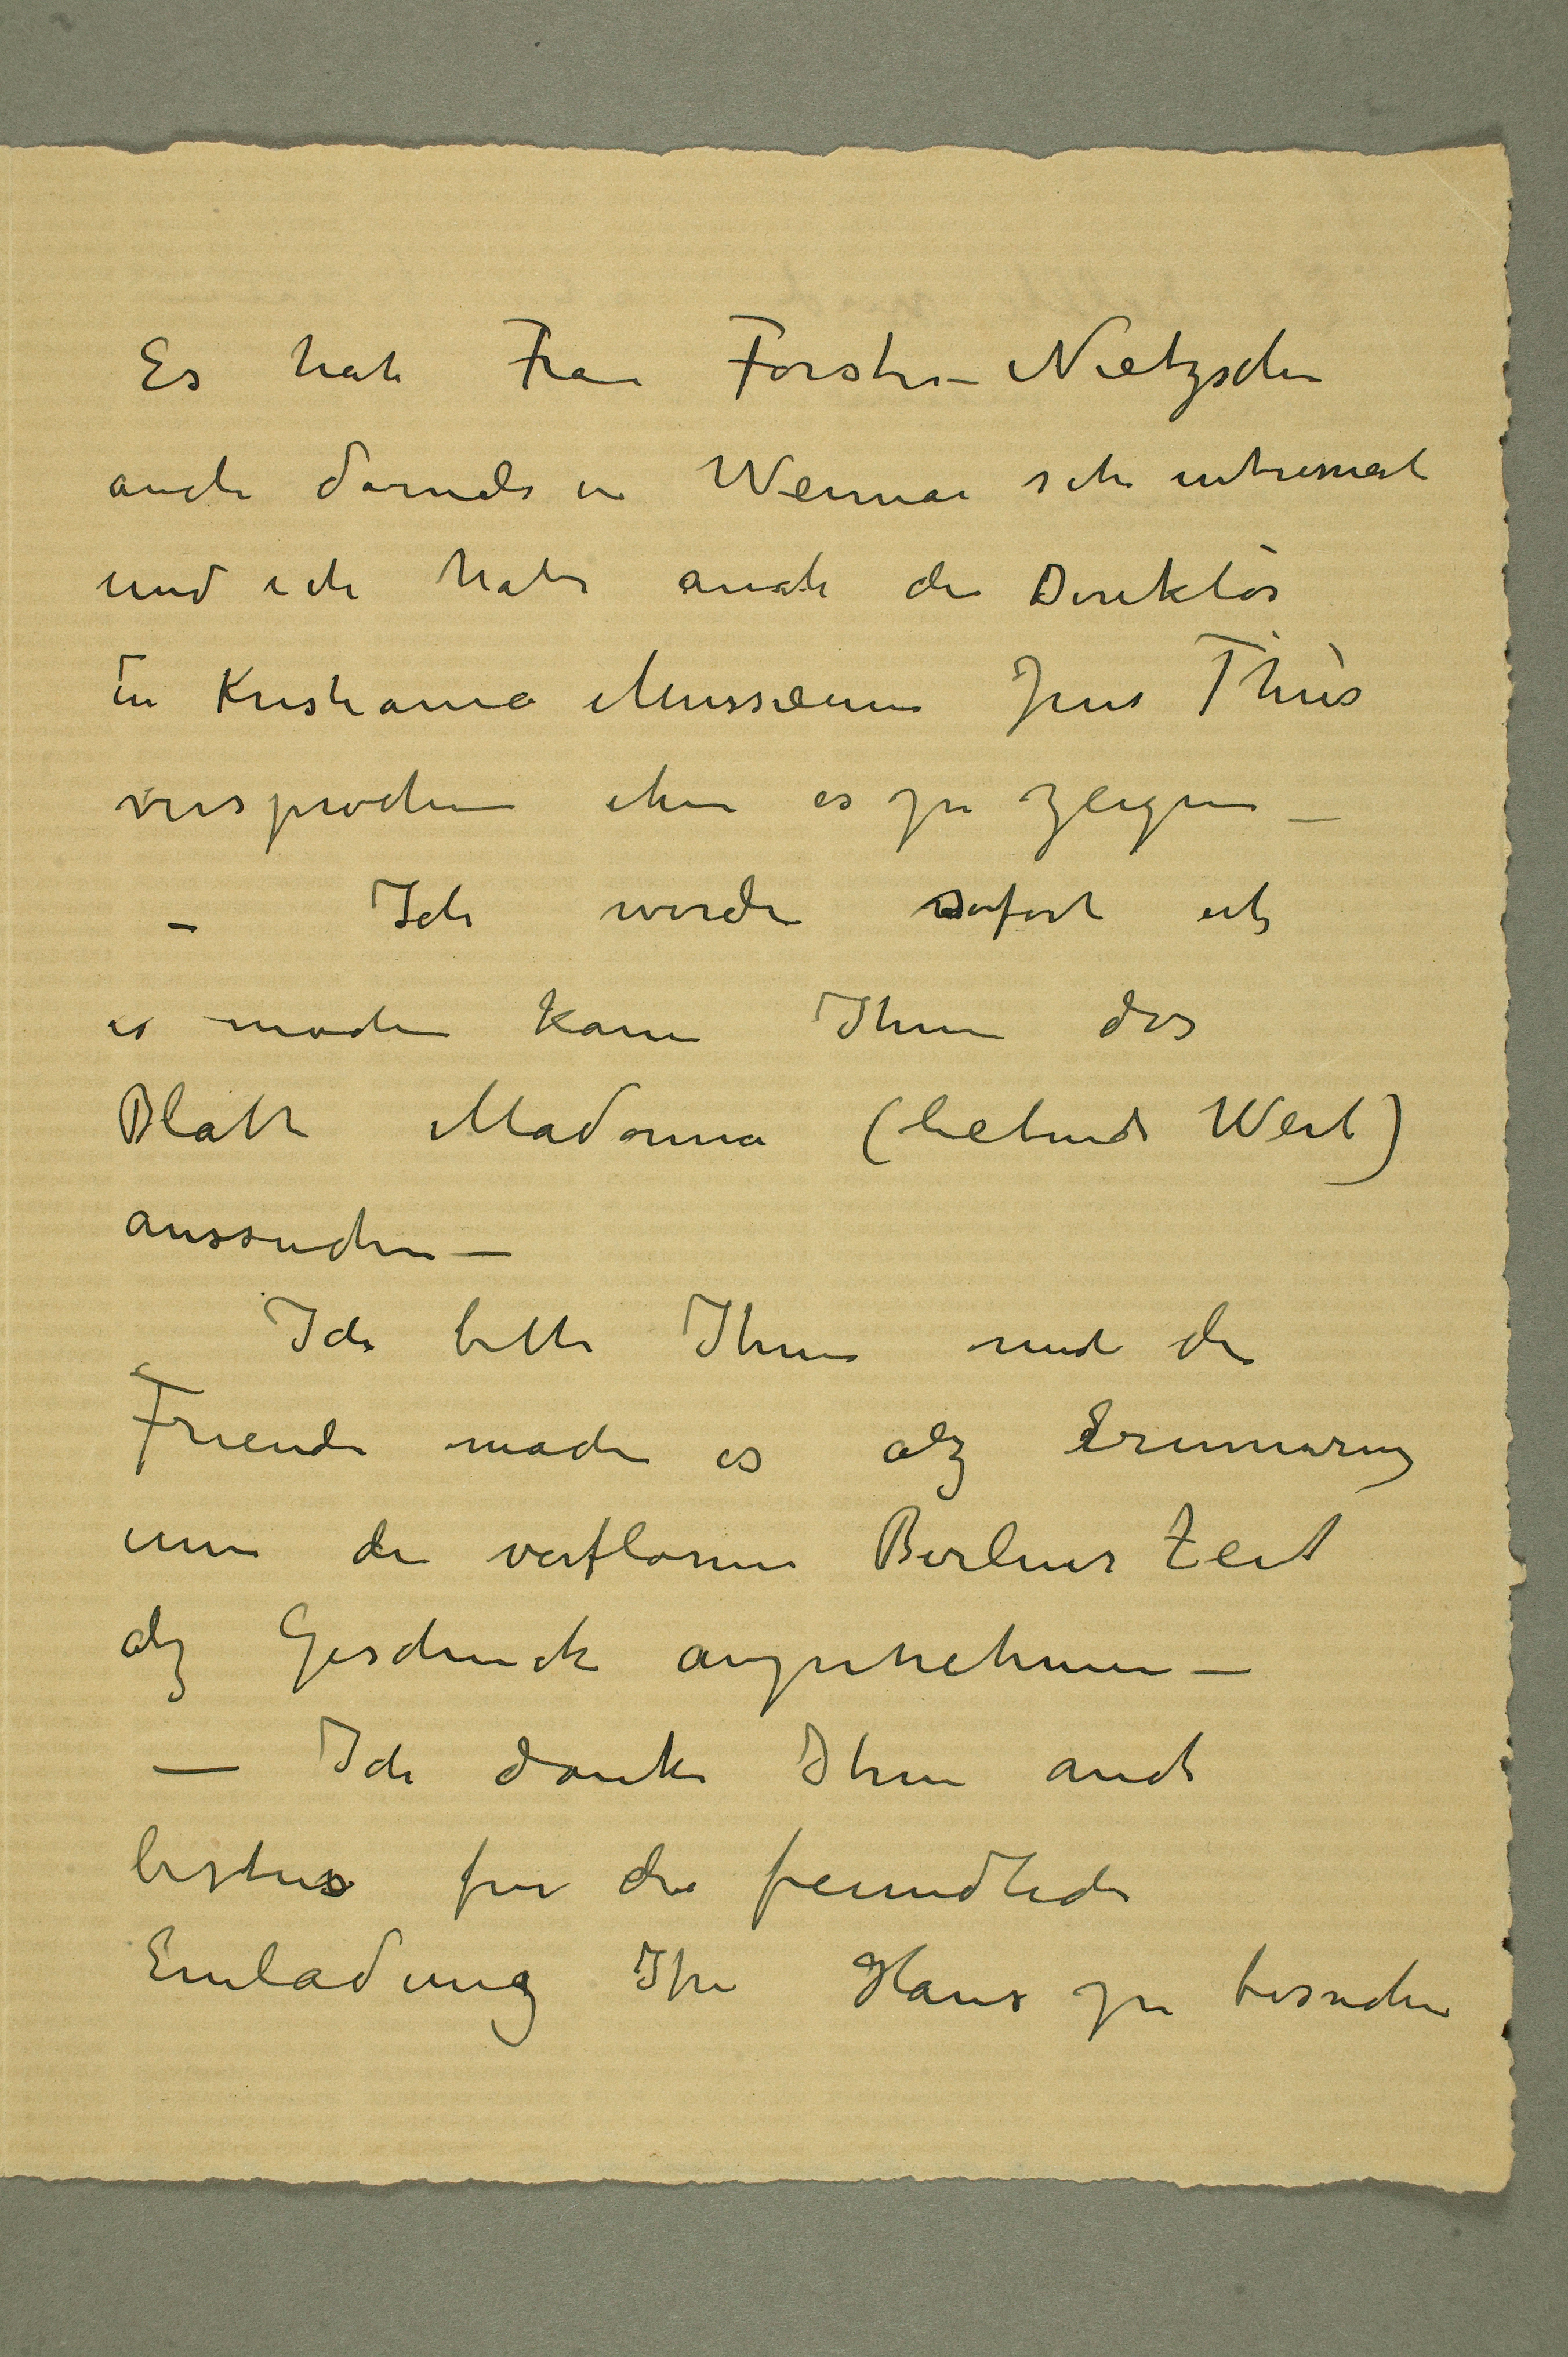 Es hat Frau Förster-Nietzsche
auch damals in Weimar sehr intresiert
und ich habe auch die Direktör
in Kristiania Mussæum Jens Thiis
versprochen ihm es zu zeigen –
– Ich werde sofort ich
es machen kann Ihnen das
Blatt Madonna (liebende Weib)
aussuchen –
Ich bitte Ihnen und die
Friende mache es alz Erinnerung
um die verflosene Berliner Zeit
alz Geschenck anzunehmen –
– Ich danke Ihnen auch
bestens fur die freundliche
Einladung Ihr Haus zu besuchen